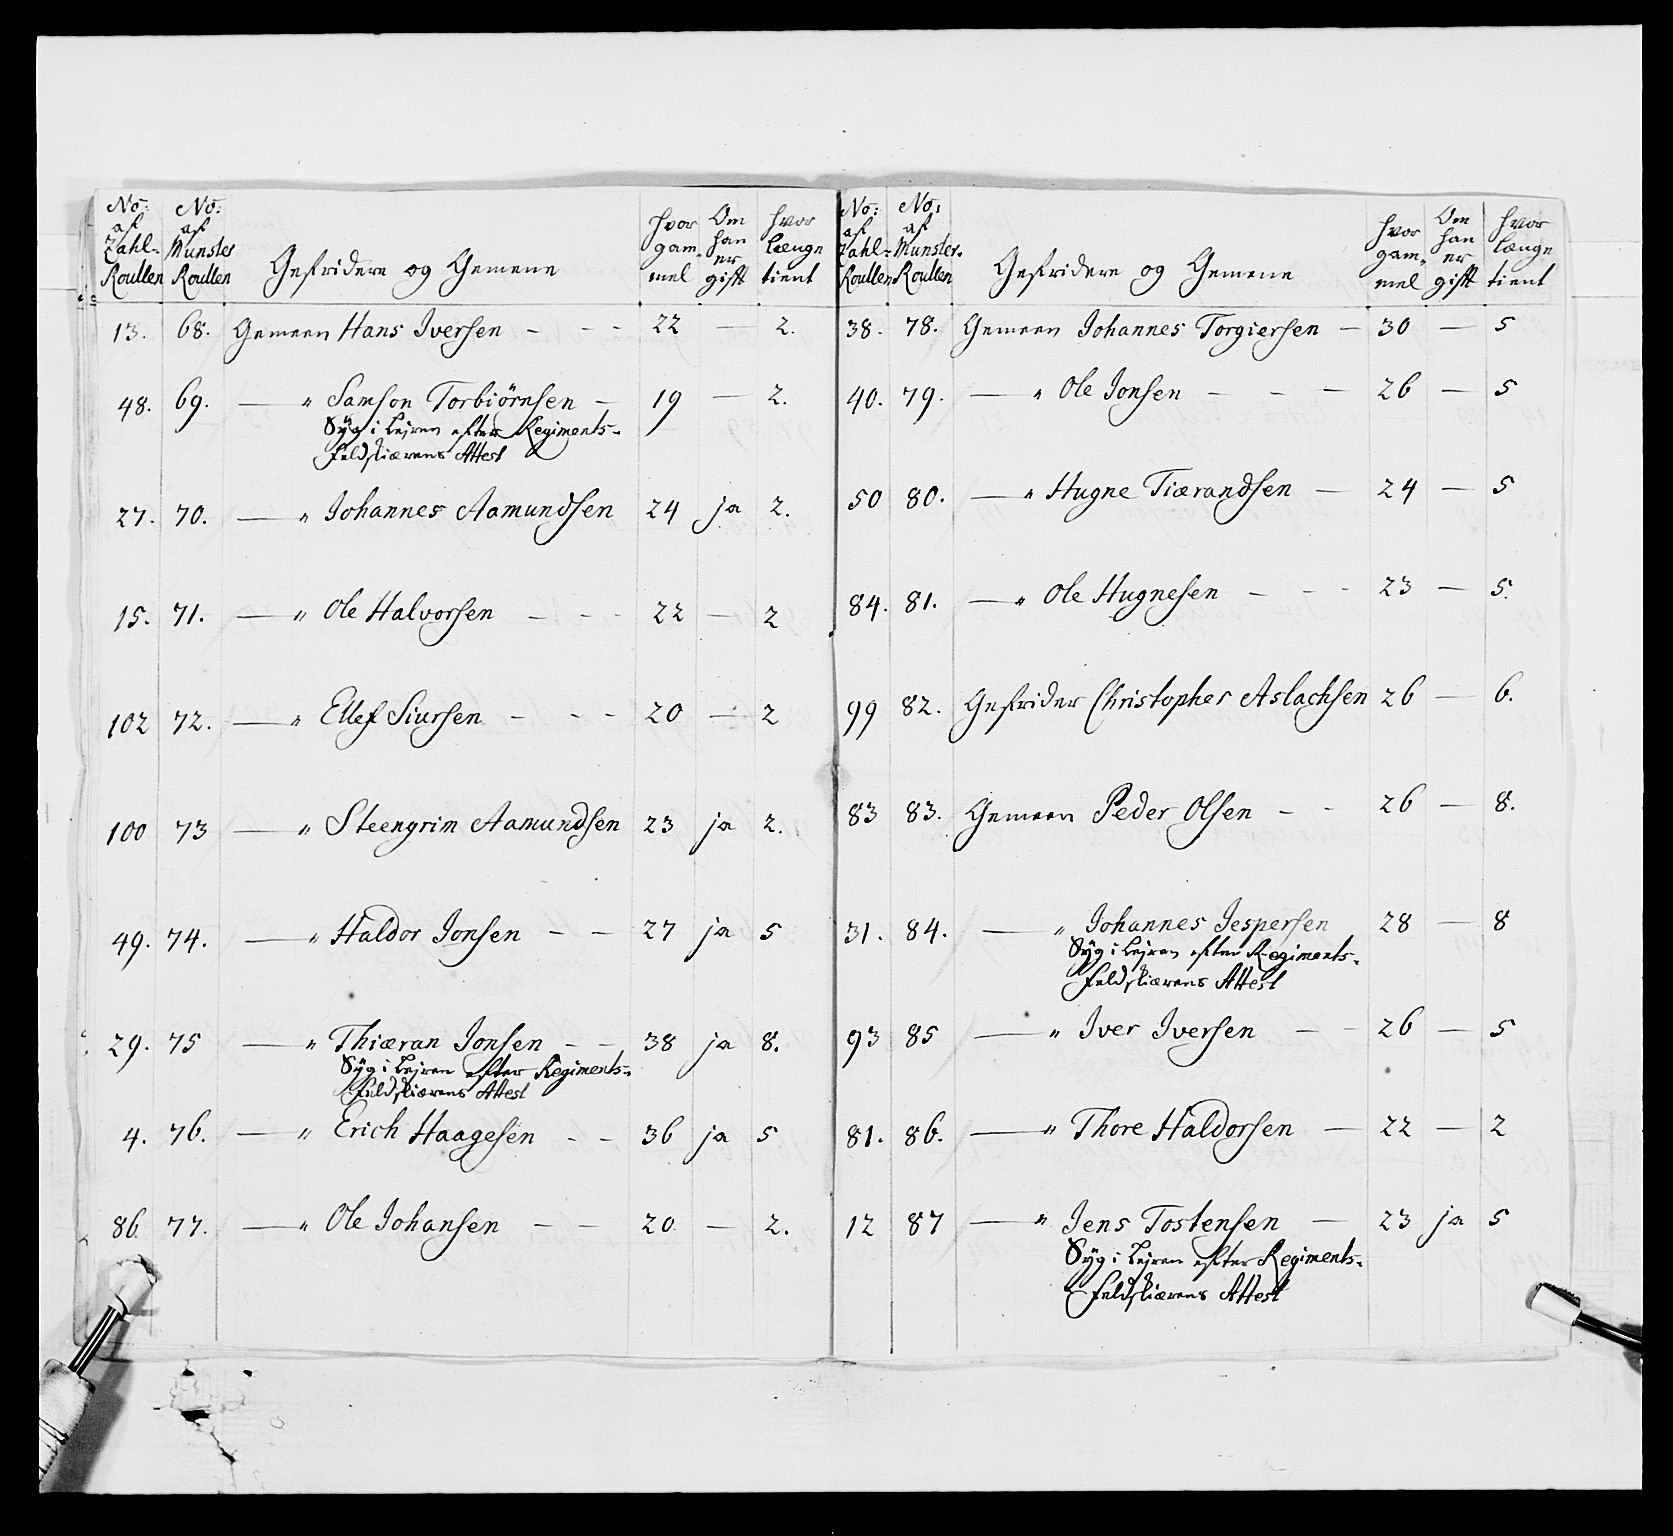 No: af Zahl= Roullen | No: af Munster Roullen | Gefridere og Gemene | hvor gam„ mel | Om han er gifft | hvor længe tient
13. 68. Gemeen Hans Iversen - - - 22 — 2.
48. 69. — " Samson Torbiörnsen — 19 — 2.
Syg i Lejren efter Regiments=
Feldskiærens Attest
27. 70. — " Johannes Aamundsen 24 ja 2.
15. 71. — " Ole Halvorsen - - - 22 — 2
102 72. — " Ellef Siursen - - - 20 — 2
100 73 — " Steengrim Aamundsen 23 ja 2.
49. 74. — " Haldor Jonsen - - 27 ja 5
29. 75 — " Thiæran Jonsen - - 38 ja 8.
Syg i Lejren efter Regiments=
Feldskiærens Attest
4. 76. — " Erich Haagesen - - 36 ja 5
86. 77. — " Ole Johansen - - 20 — 2.
No: af Zahl= Roullen | No: af Munster. Roullen | Gefridere og Gemene | hvor gam„ mel | Om han er gifft | hvor længe tient
38. 78. Gemeen Johannes Torgiersen — 30 — 5
40. 79. — " Ole Jonsen - - - 26 — 5
50 80. — " Hugne Tiærandsen — 24 — 5
84. 81. — " Ole Hugnesen - - - 23 — 5.
99 82. Gefrider Christopher Aslachsen 26 — 6.
83 83. Gemeen Peder Olsen - - 26 — 8.
31. 84. — " Johannes Jespersen 28 — 8
Syg i Lejren efter Regiments=
Feldskiærens Attest
93 85 — " Iver Iversen - - 26 — 5
81. 86. — " Thore Haldorsen — 22 — 2
12 87 — " Jens Tostensen — 23 ja 5
Syg i Lejren efter Regiments=
Feldskiærens Attest